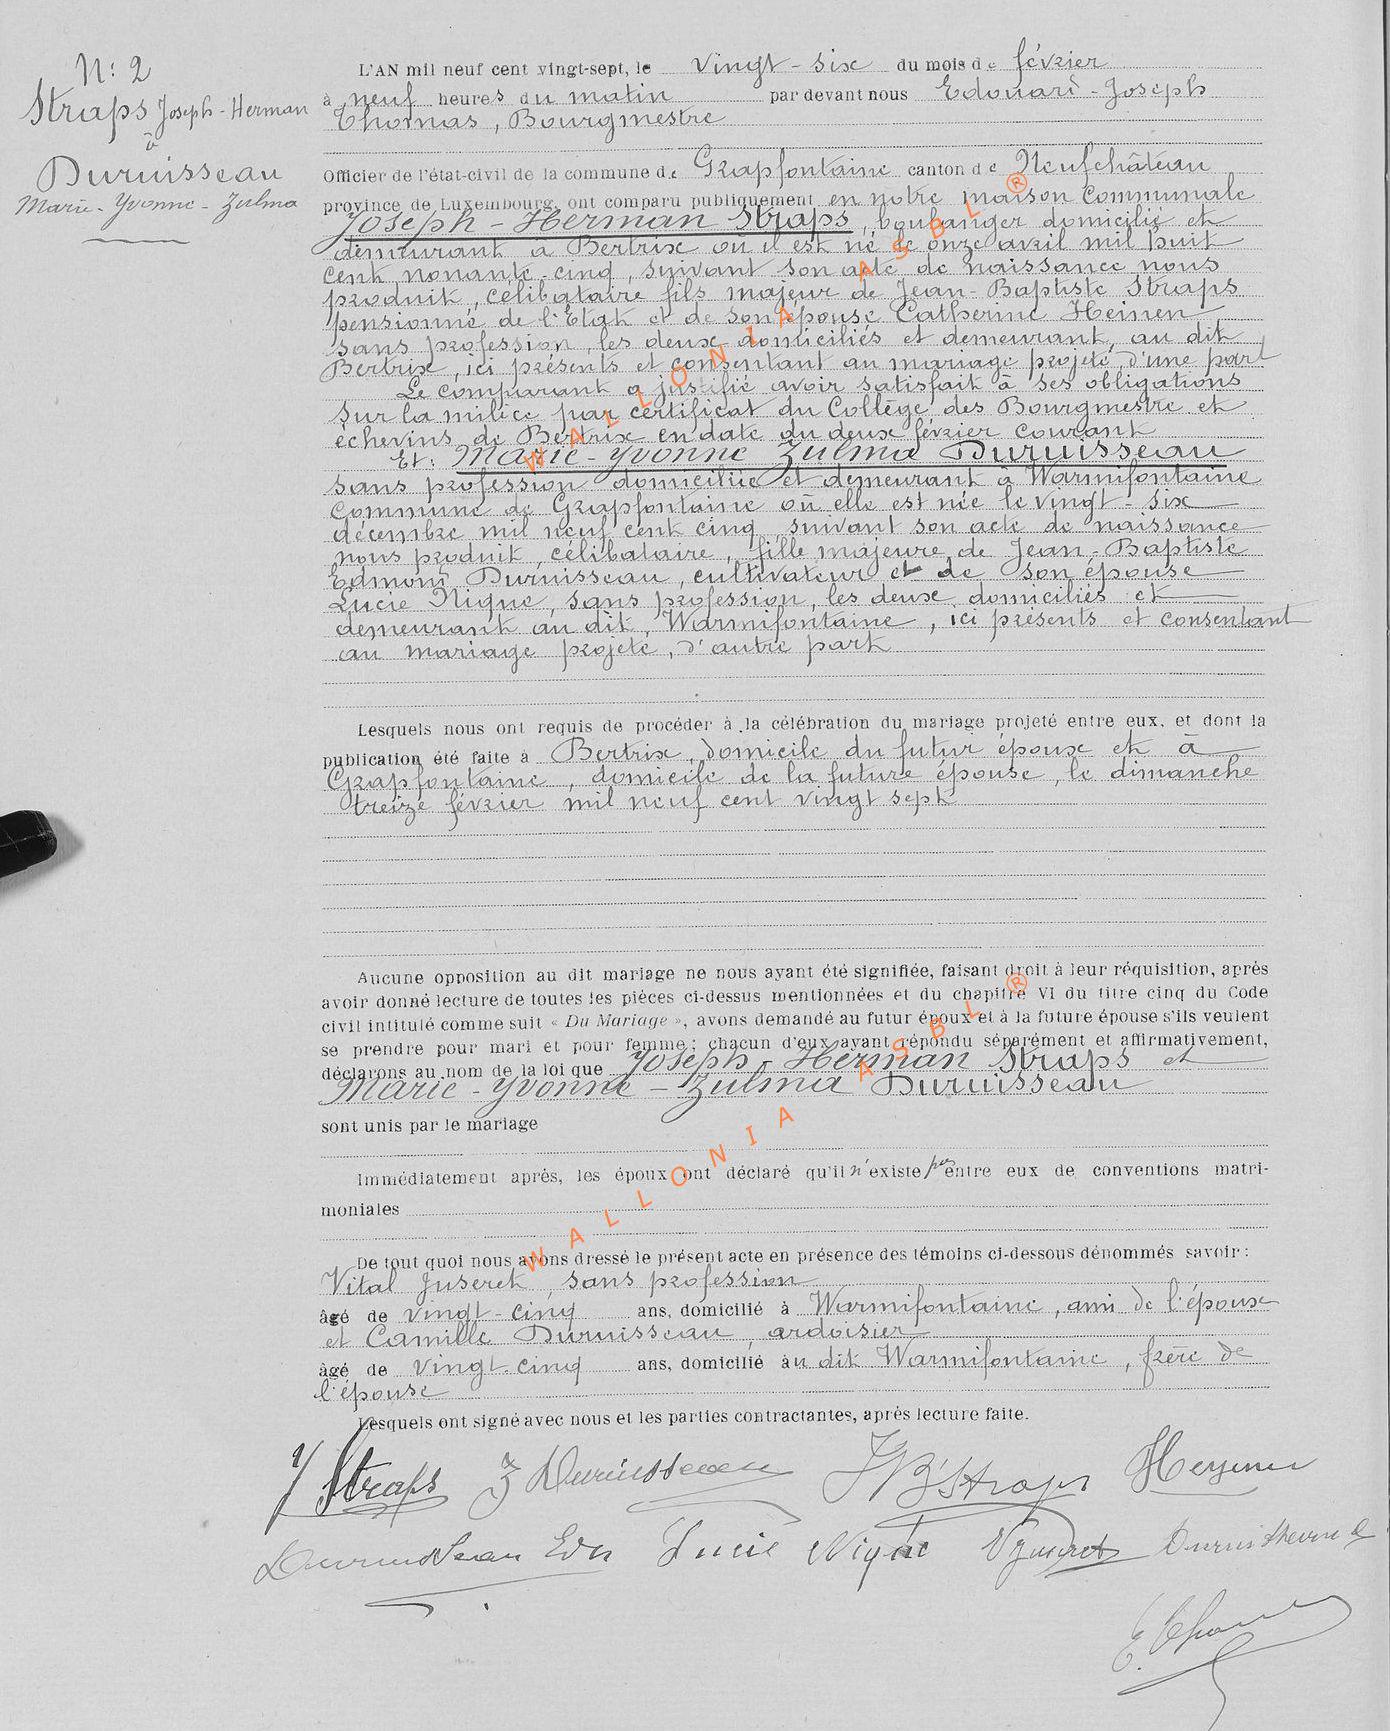 N: 2
Straps Joseph-Herman
à
Duruisseau
Marie-Yvonne-Zulma
L'AN mil neuf cent vingt-sept, le vingt-six du mois de février
à neuf heures du matin par devant nous Edouard-Joseph
Thomas, Bourgmestre
Officier de l'état-civil de la commune de Grapfontaine canton de Neufchâteau
province de Luxembourg, ont comparu publiquement en notre maison Communale
Joseph-Herman Straps, boulanger domicilié et
demeurant à Bertrix où il est né le onze avril mil huit
cent nonante-cinq, suivant son acte de naissance nous
produit, célibataire fils majeur de Jean-Baptiste Straps
pensionné de l'Etat et de son épouse Catherine Heinen
sans profession, les deux domiciliés et demeurant, au dit
Bertrix, ici présents et consentant au mariage projeté d'une part
Le comparant a justifié avoir satisfait à ses obligations
sur la milice par certificat du Collège des Bourgmestre et
échevins de Bertrix en date du deux février courant
Et: Marie-Yvonne Zulma Duruisseau
sans profession domiciliée et demeurant à Warmifontaine
Commune de Grapfontaine où elle est née le vingt-six
décembre mil neuf cent cinq, suivant son acte de naissance
nous produit, célibataire, fille majeure de Jean-Baptiste
Edmond Duruisseau, cultivateur et de son épouse
Lucie Nique, sans profession, les deux domiciliés et
demeurant au dit, Warmifontaine, ici présents et consentant
au mariage projeté, d'autre part
Lesquels nous ont requis de procéder à la célébration du mariage projeté entre eux, et dont la
publication été faite à Bertrix, domicile du futur époux et à
Grapfontaine, domicile de la future épouse, le dimanche
treize février mil neuf cent vingt sept
Aucune opposition au dit mariage ne nous ayant été signifiée, faisant droit à leur réquisition, après
avoir donné lecture de toutes les pièces ci-dessus mentionnées et du chapitre VI du titre cinq du Code
civil intitulé comme suit « Du Mariage », avons demandé au futur époux et à la future épouse s'ils veulent
se prendre pour mari et pour femme; chacun d'eux ayant répondu séparément et affirmativement,
déclarons au nom de la loi que Joseph-Herman Straps et
Marie-Yvonne-Zulma Duruisseau
sont unis par le mariage
Immédiatement après, les époux ont déclaré qu'il n'existe pas entre eux de conventions matri-
moniales
De tout quoi nous avons dressé le présent acte en présence des témoins ci-dessous dénommés savoir:
Vital Juseret, sans profession
âgé de vingt-cinq ans, domicilié à Warmifontaine, ami de l'époux
et Camille Duruisseau, ardoisier
âgé de vingt-cinq ans, domicilié au dit Warmifontaine, frère de
l'épouse
Lesquels ont signé avec nous et les parties contractantes, après lecture faite.
J Straps Z Duruisseau JB Straps Heynen
Duruisseau Edm Lucie Nique V Juseret Duruisseau C
E. Thomas
WALLONIA ASBL ®
WALLONIA ASBL ®